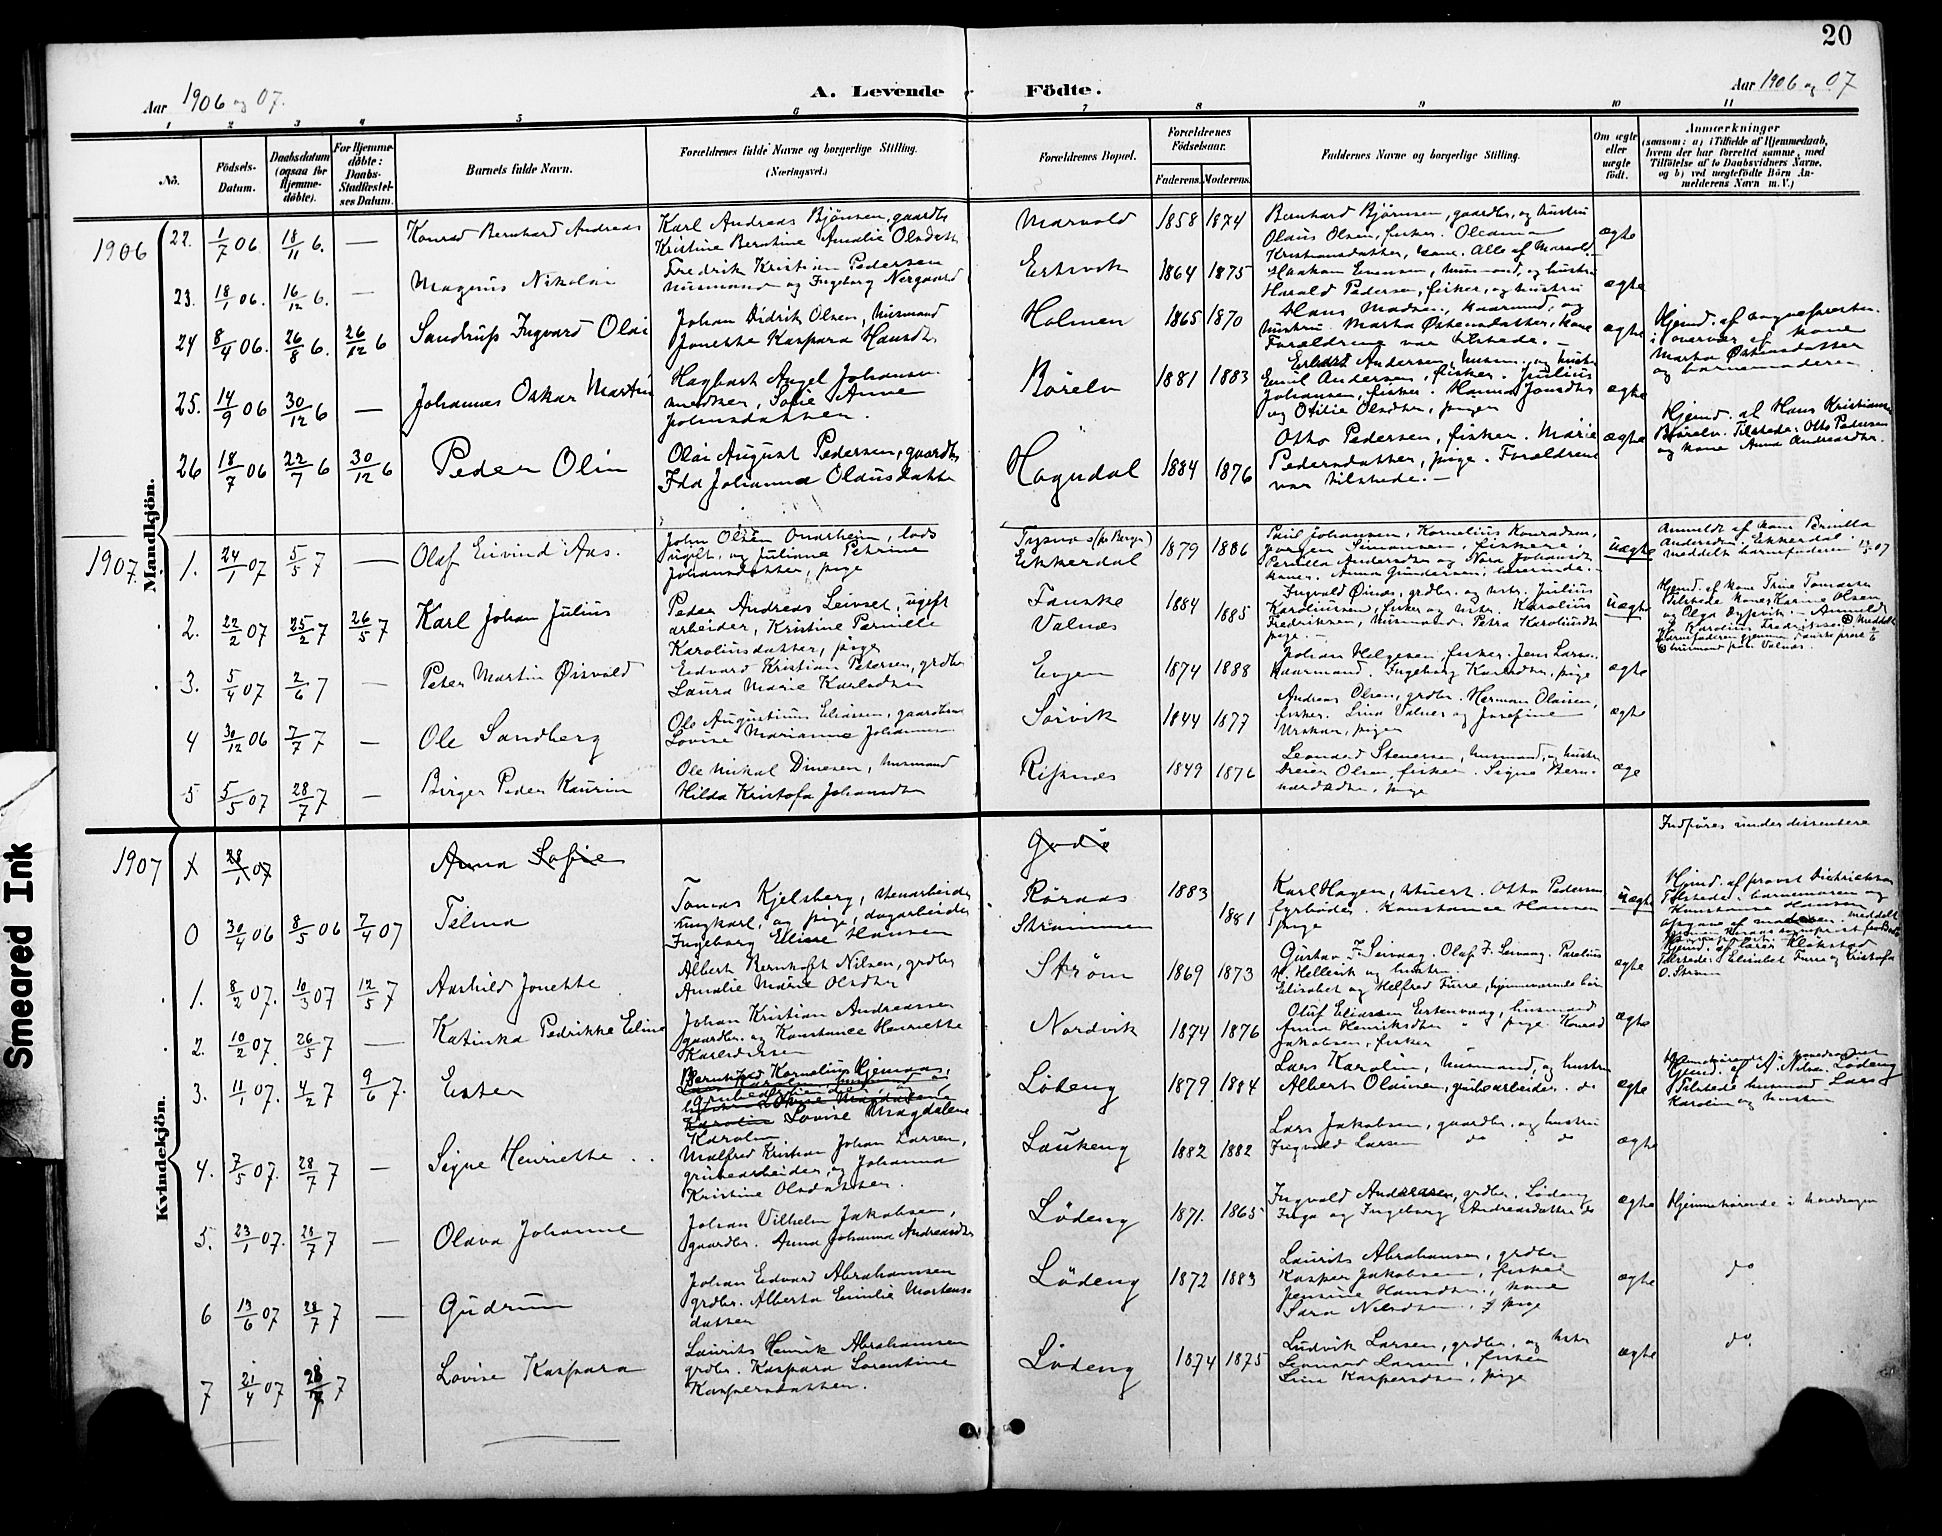 20
Aar 1906 og 07.
A. Levende Födte.
Aar 1906 og 07
1 2 3 4 5 6 7 8 9 10 11
No.
Födsels-Datum.
Daabsdatum (ogsaa for Hjemme-döbte).
For Hjemme-döbte: Daabs-Stadfæstel-ses Datum.
Barnets fulde Navn.
Forældrenes fulde Navne og borgerlige Stilling.
(Næringsvei.)
Forældrenes Bopæl.
Forældrenes Födselsaar.
Faderens. Moderens.
Faddernes Navne og borgerlige Stilling.
Om ægte eller uægte födt.
Anmærkninger
(saasom: a) i Tilfælde af Hjemmedaab,
hvem der har forrettet samme, med
Tilföielse af to Daabsvidners Navne,
og b) ved uægtefödte Börn An-
melderens Navn m. V.)
Mandkjön.
1906
22. 1/7 06 18/11 6. — Konrad Bernhard Andreas
Karl Andreas Bjönsen, gaardbr
Kristine Berntine Amalie Olsdatt
Marvold 1858 1874
Bernhard Bjørnsen, gaardbr, og hustru
Olaus Olsen, fisker. Oleanna
Kristiansdatter, kone. Alle af Marvold.
ægte
23. 18/1 06. 16/12 6. — Magnus Nikolai
Fredrik Kristian Pedersen
husmand og Ingeborg Nergaard
Ertsvik 1864 1875
Haakon Evensen, husmand, og hustru
Harald Pedersen, fisker, og hustru
ægte
24 8/4 06. 26/8 6. 26/12 6 Sandrup Ingvard Olai
Johan Didrik Olsen, husmand
Jonette Kaspara Hansdtr
Holmen 1865 1870
Hans Madsen, kaarmand, og
hustru. Marta Østensdatter, kone
Forældrene var tilstede. —
ægte
Hjemd. af sognepræsten
i overvær af kone
Marta Østensdatter
og barnemoderen
25. 14/9 06 30/12 6 — Johannes Oskar Martin
Hagbart Angel Johansen
snedker, Sofie Anne
Johnsdatter.
Børelv 1881 1883
Erhart Andersen, husm. og hustr
Emil Andersen, fisker. Julius
Johansen, fisker. Hanna Jonsdtr
og Otilie Olsdtr, piger
ægte
26 18/7 06 22/7 6 30/12 6 Peder Olin
Olai August Pedersen, gaardbr
Ida Johanna Olausdatter
Høgndal 1884 1876
Otto Pedersen, fisker. Marie
Pedersdatter, pige. Forældrene
var tilstede. —
ægte
Hjemd. af Hans Kristiansen
Børelv. Tilstede: Otto Pedersen
og kone Anna Andreasdtr.
1907.
1. 24/1 07 5/5 7 — Olaf Eivind Aas.
John Olsen Onarheim, lods
ugift, og Juliane Petrine
Johansdatter, pige
Tysnæs (pr Bergen)
Ekkerdal 1879 1886
Paul Johansen, Kornelius Konradsen,
Jørgen Simonsen, fiskere.
Pernilla Andersdtr og Nora Johansdtr
koner. Anna Gundersen, lærerinde.
uægte
Anmeldt af kone Pernilla
Andersdtr. Ekkerdal.
meddelt barnefaderen
2. 22/2 07 25/2 7 26/5 7 Karl Johan Julius
Peder Andreas Leivset, ugift
arbeider, Kristine Pernille
Karoliusdatter, pige
Fauske
Valnæs 1884 1885
Ingvald Øinæs, grdbr. og hstr. Julius
Karoliussen, fisker og hstr. Karolius
Fredriksen, husmand. Petra Karoliusdtr
pige.
uægte
Hjemd. af kone Trine Tomassen
Tilstede koner Karine Olsen
og Olga Dypvik. — Anmeldt
af Karolius Fredriksen. meddelt
barnefaderen gjennem Fauske prest
husmand paa Valnæs.
3. 5/4 07 2/6 7 — Peter Martin Øisvald
Edvard Kristian Petersen, grdbr
Laura Marie Karlsdtr
Evjen 1874 1888
Johan Helgesen, fisker. Jens Larsen
kaarmand. Ingeborg Karlsdtr, pige
ægte
4 30/12 06 7/7 7 — Ole Sandberg
Ole Augustinus Eliassen, gaardbr
Lovise Marianne Johannesen
Sørvik 1844 1877
Andreas Olsen, grdbr. Herman Olaisen,
fisker. Lina Valnes og Josefine
piger
ægte
5 5/5 07 28/7 7 — Birger Peder Kaurin
Ole Mikal Dinesen, husmand
Hilda Kristofa Johansdtr
Risnæs 1849 1876
Leonard Stenersen, husmand, og hustru
Dreier Olsen, fisker. Signe Bern-
hardsdtr, pige
æge
Kvindekjön.
1907
X 28/1 07 Anna Sofie
Godø
Indføres under dissentere
0 30/4 06 8/5 06 7/4 07 Telma
Tomas Kjelsberg, stenarbeider
ungkarl, og pige, dagarbeider
Ingeborg Elisse Hansen
Røraas
Strømmen 1883 1881
Karl Hagen, stuert. Otto Pedersen
fyrbøder. Konstance Hansen
pige
uægte
Hjemd. af provst Dietrichson
Tilstede: barnemoren og
Konstance Hansen
1. 8/2 07. 10/3 07 12/5 7 Aashild Jonette
Albert Bernhoft Nilsen, grdbr
Amalie Marie Olsdtr
Strøm 1869 1873
Gustav J. Seivaag. Olaf J. Seivaag. Parelius
H. Hellevik og hustru.
Elisabet og Helfred Furre, hjemmeværende bør
ægte
Hjemd. af Lars Klokstad
Tilstede: Elisabet Furre og Kristofa
O. Strøm
2. 10/2 07. 26/5 7 — Katinka Pedrikke Eline
Johan Kristian Andreassen
gaardbr. og Konstance Henriette
Karlsdtr
Nordvik 1874 1876
Oluf Eliassen Ertenvaag, husmand
Anna Henriksdtr " pige. Konrad
Jakobsen, fisker
ægte
3. 11/1 07. 4/2 7 9/6 7. Ester
Bernhard Kornelius Hjemaas,
grubearbeider
Lovise Magdalene
Karolin
Løding 1879 1884
Lars Karolin, husmand, og hustru
Albert Olaisen, grubearbeider. do
ægte
Hjemd. af A. Nilsen. Løding
Tilstede husmand Lars
Karolin og hustru
4. 7/5 07. 28/7 7 — Signe Henriette
Malfred Kristian Johan Larsen,
grubearbeider, og Johanna
Kristine Olsdatter.
Laukeng 1882 1882
Lars Jakobsen, gaardbr. og hustru
Ingvald Larsen do do
ægte
5. 23/1 07. 28/7 7 — Olava Johanne
Johan Vilhelm Jakobsen,
gaardbr. Anna Johanna Andreasdtr
Løding 1871. 1865
Ingvald Andreasen, grdbr. Løding
Inga og Ingeborg Andreasdatter do
ægte
Hjemmehørende i Snedragen
6 13/6 07 28/7 7 — Gudrun
Johan Edvard Abrahamsen
grdbr. Alberta Emilie Mortens-
datter
Løding 1872 1883
Laurits Abrahamsen, grdbr
Kasper Jakobsen, fisker
Jensine Hansdtr, kone
Sara Nilsdtr, pige
ægte
do
7 21/4 07 28/7 7 Lovise Kaspara
Laurits Henrik Abrahamsen
grdbr. Kaspara Sorentine
Kaspersdatter.
Løding 1874 1875
Ludvik Larsen, grdbr. og hstr
Leonard Larsen, fisker
Lina Kaspersdtr, pige
ægte
do.
Smeared Ink